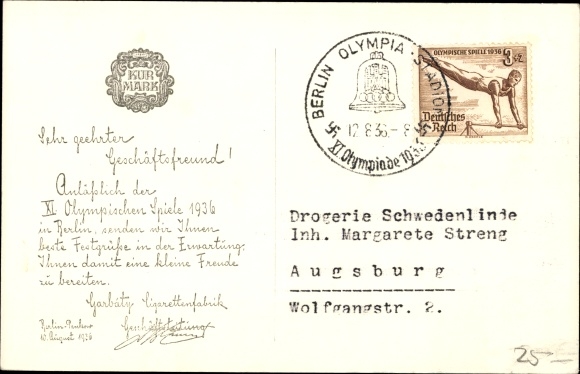 KUR
MARK
Sehr geehrter
Geschäftsfreund!
Anläßlich der
XI. Olympischen Spiele 1936
in Berlin, senden wir Ihnen
beste Festgrüße in der Erwartung,
Ihnen damit eine kleine Freude
zu bereiten.
Garbáty Cigarettenfabrik
Berlin-Pankow
10. August 1936
Geschäftsleitung
BERLIN OLYMPIA-STADION
12.8.36.-8
XI. Olympiade 1936
OLYMPISCHE SPIELE 1936
3+2
Deutsches
Reich
Drogerie Schwedenlinde
Inh. Margarete Streng
Augsburg
Wolfgangstr. 2.
25-